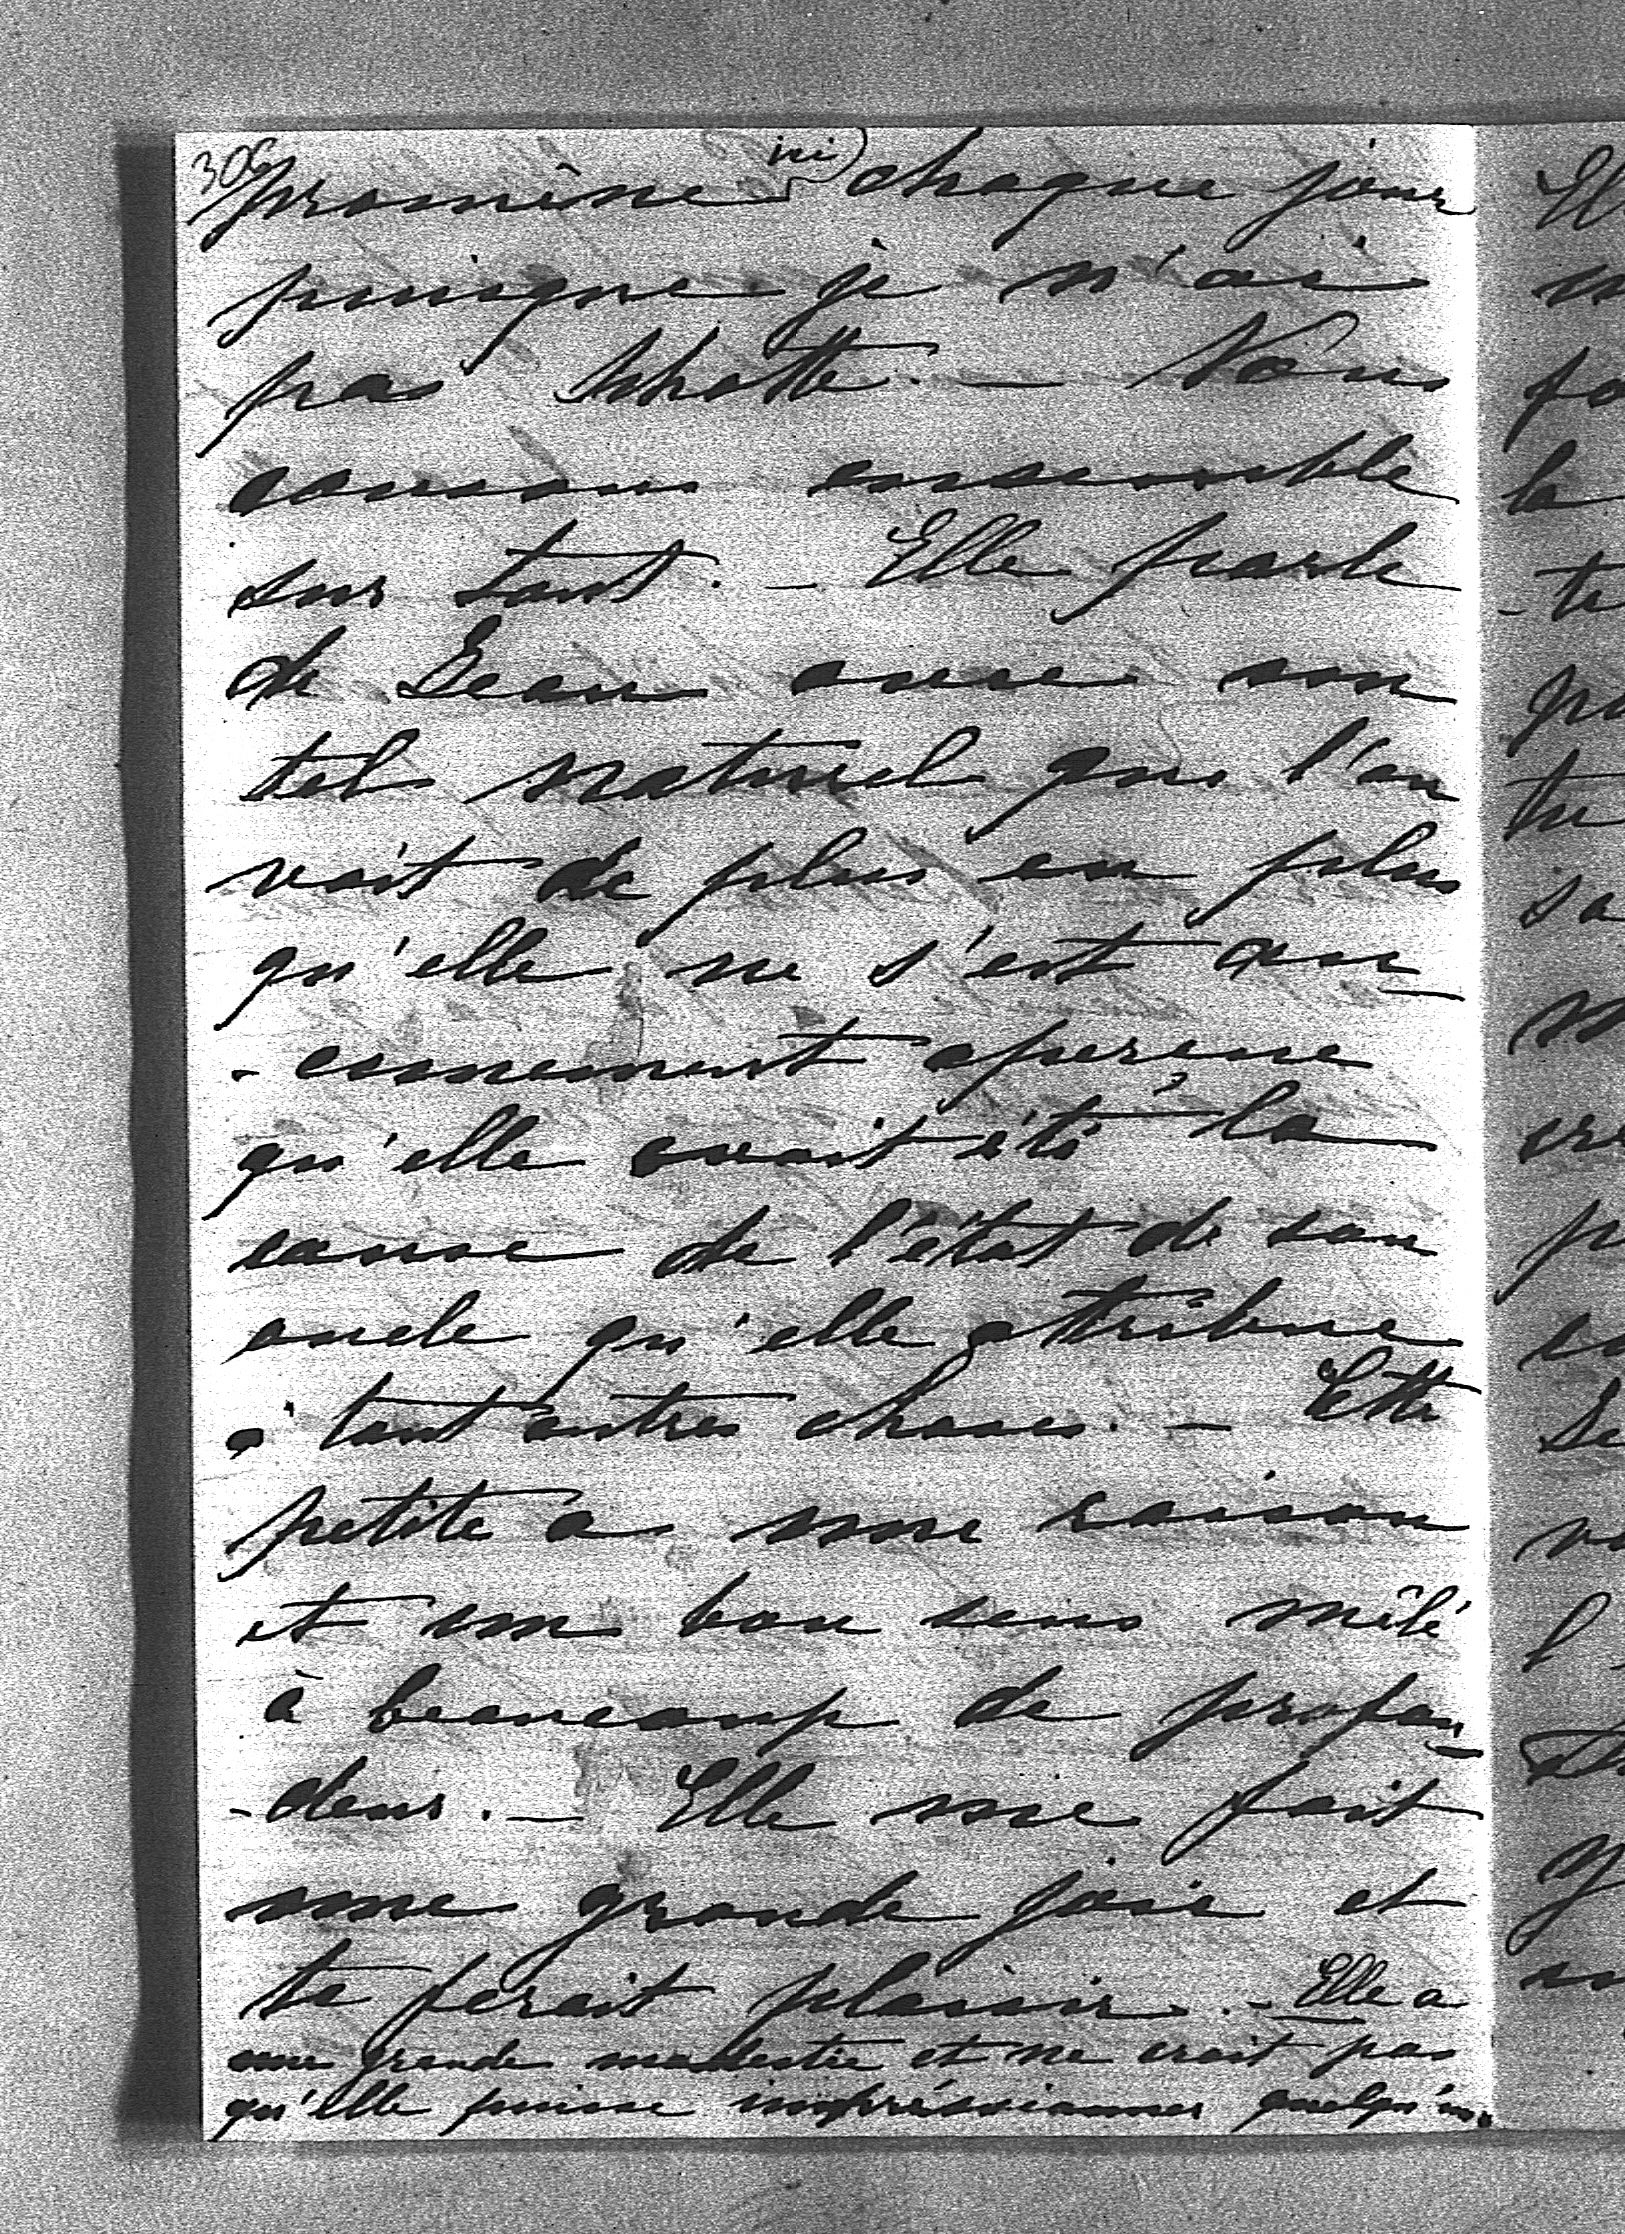 306
promène ici chaque jour
puisque je n'ai
pas Khotte. — Nous
causons ensemble
sur tout. — Elle parle
de Jean avec son
tel naturel que l'on
voit de plus en plus
qu'elle ne s'est au-
-cunement aperçue
qu'elle avait été la
cause de l'état de son
oncle qu'elle attribue
à tant autres choses. — Cette
petite a une raison
et un bon sens mêlé
à beaucoup de profon-
-deur. — Elle me fait
une grande joie et
te ferait plaisir. — Elle a
une grande modestie et ne croit pas
qu'elle puisse impréssionner quelqu'un.